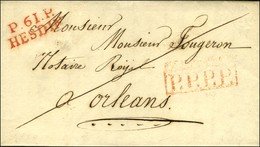 P.61.P.
HESDIN
Monsieur
Monsieur Fougeron
Notaire Royal
P.P.P.P.
a orleans.